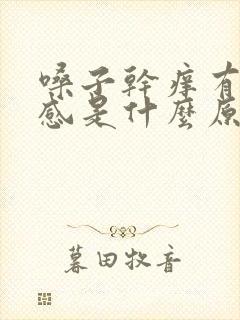 嗓子幹痒有
感是什麼原
暮田牧音